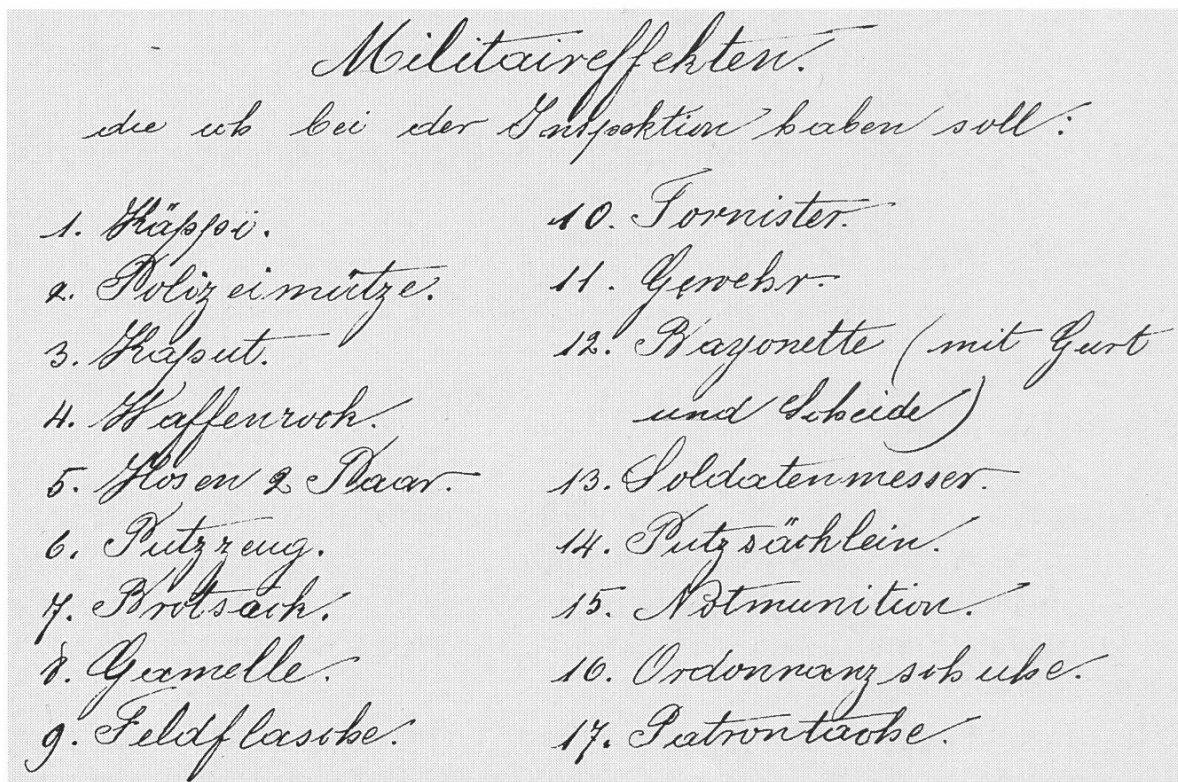 Militaireffekten.
die ich bei der Inspektion haben soll:
1. Käppi.
2. Polizeimütze.
3. Kaput.
4. Waffenrock.
5. Hosen 2 Paar.
6. Putzzeug.
7. Brotsack.
8. Gamelle.
9. Feldflasche.
10. Tornister.
11. Gewehr.
12. Bayonette (mit Gurt
und Scheide)
13. Soldatenmesser.
14. Putzsäcklein.
15. Notmunition.
16. Ordonnanzschuhe.
17. Patrontache.